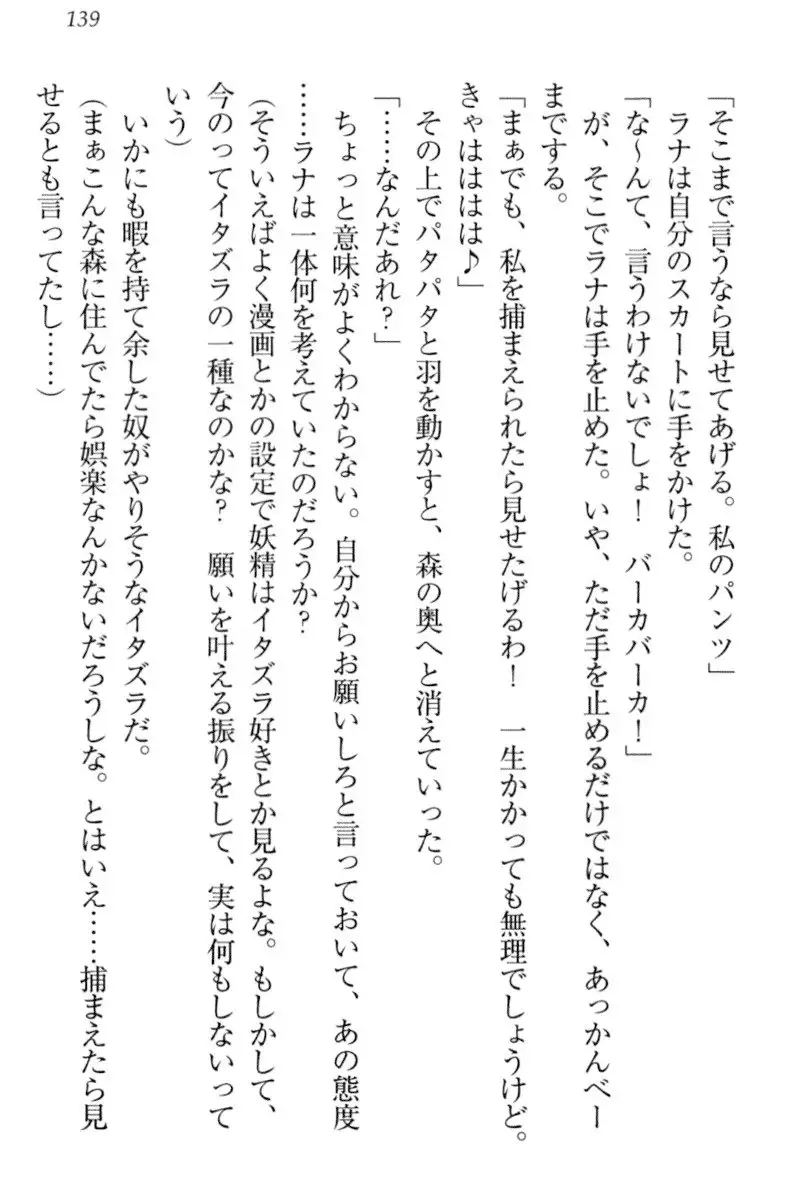 139
「そこまで言うなら見せてあげる。私のパンツ」
　ラナは自分のスカートに手をかけた。
「な〜んて、言うわけないでしょ！　バーカバーカ！」
　が、そこでラナは手を止めた。いや、ただ手を止めるだけではなく、あっかんべー
までする。
「まぁでも、私を捕まえられたら見せたげるわ！　一生かかっても無理でしょうけど。
きゃはははは♪」
　その上でパタパタと羽を動かすと、森の奥へと消えていった。
「……なんだあれ？」
　ちょっと意味がよくわからない。自分からお願いしろと言っておいて、あの態度
……ラナは一体何を考えていたのだろうか？
（そういえばよく漫画とかの設定で妖精はイタズラ好きとか見るよな。もしかして、
今のってイタズラの一種なのかな？　願いを叶える振りをして、実は何もしないって
いう）
　いかにも暇を持て余した奴がやりそうなイタズラだ。
（まぁこんな森に住んでたら娯楽なんかないだろうしな。とはいえ……捕まえたら見
せるとも言ってたし……）